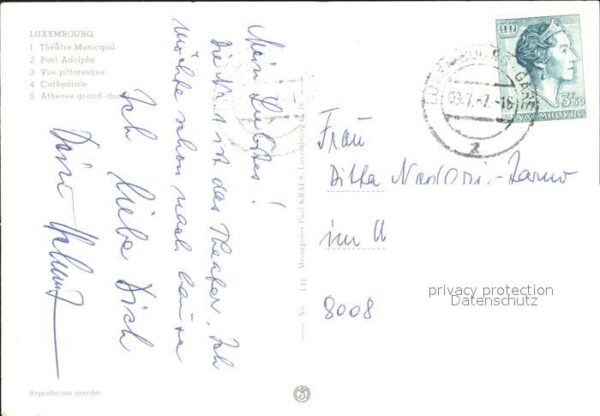 LUXEMBOURG
1 Théâtre Municipal
2 Pont Adolphe
3 Vue pittoresque
4 Cathédrale
5 Athénée grand-du
Mein Liebstes!
Die Nr. 1 ist das Theater. Ich
möchte schon nach Hause
Ich liebe Dich
Dein Helmut
Reproduction interdite
No. 141 Messageries Paul KRAUS, Luxembourg
LUXEMBOURG GARE
-7.-7.-16
2
3F50
LUXEMBOURG
Frau
Ditta
im U
8008
privacy protection
Datenschutz